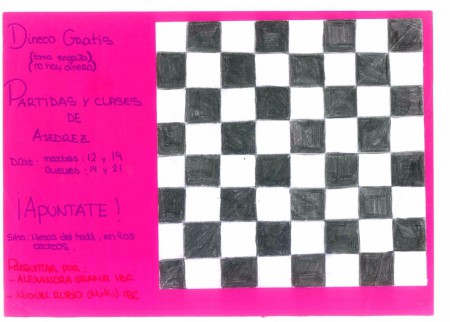 Dinero Gratis
(toma engaño)
(no hay dinero)
PARTIDAS Y CLASES
DE
AJEDREZ
Días: martes: 12 y 19
jueves: 14 y 21
¡APUNTATE!
Sitio: Mesas del hall, en los
recreos.
PREGUNTAR POR:
- ALEXANDRA GRAMA 1BF
- MIGUEL RUBIO (Miki) 1BC